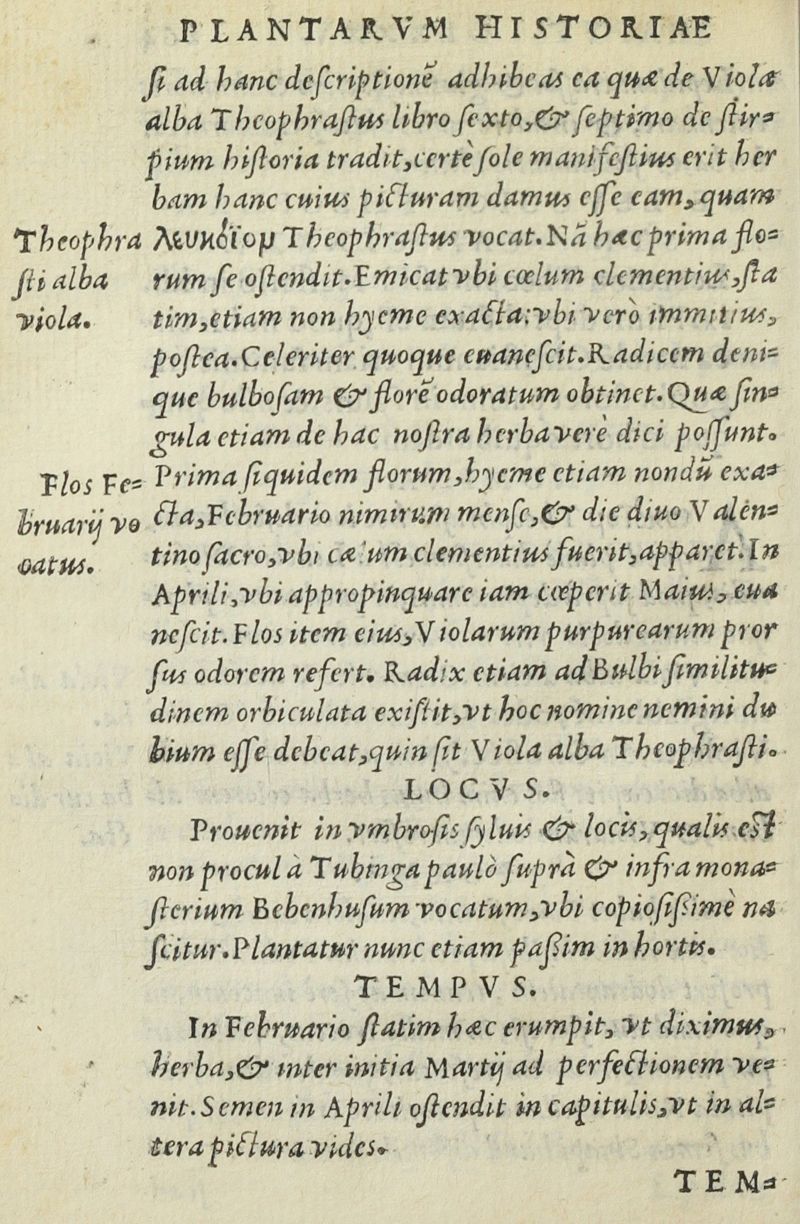 PLANTARVM HISTORIAE
ſi ad hanc deſcriptionē adhibeas ea quæ de Viola
alba Theophraſtus libro ſexto,& ſeptimo de ſtir-
pium hiſtoria tradit,certè ſole manifeſtius erit her
bam hanc cuius picturam damus eſſe eam, quam
Theophra
ſti alba
viola.
λευκόϊομ Theophraſtus vocat.Nā hæc prima flo-
rum ſe oſtendit.Emicat vbi cœlum clementius,ſta
tim,etiam non hyeme exacta:vbi verò immitius,
poſtea.Celeriter quoque euaneſcit.Radicem deni-
que bulboſam & florē odoratum obtinet.Quæ ſin-
gula etiam de hac noſtra herba verè dici poſſunt.
Flos Fe-
bruarij vo
catus.
Prima ſiquidem florum,hyeme etiam nondū exa-
cta,Februario nimirum menſe,& die diuo Valen-
tino ſacro,vbi cælum clementius fuerit,apparet.In
Aprili,vbi appropinquare iam cœperit Maius, eua
neſcit.Flos item eius,Violarum purpurearum pror
ſus odorem refert. Radix etiam ad Bulbi ſimilitu-
dinem orbiculata exiſtit,vt hoc nomine nemini du
bium eſſe debeat,quin ſit Viola alba Theophraſti.
LOCVS.
Prouenit in vmbroſis ſyluis & locis,qualis eſt
non procul à Tubinga paulò ſuprà & infra mona-
ſterium Bebenhuſum vocatum,vbi copioſiſsimè na
ſcitur.Plantatur nunc etiam paſsim in hortis.
TEMPVS.
In Februario ſtatim hæc erumpit, vt diximus,
herba,& inter initia Martij ad perfectionem ve-
nit.Semen in Aprili oſtendit in capitulis,vt in al-
tera pictura vides.
TEM-